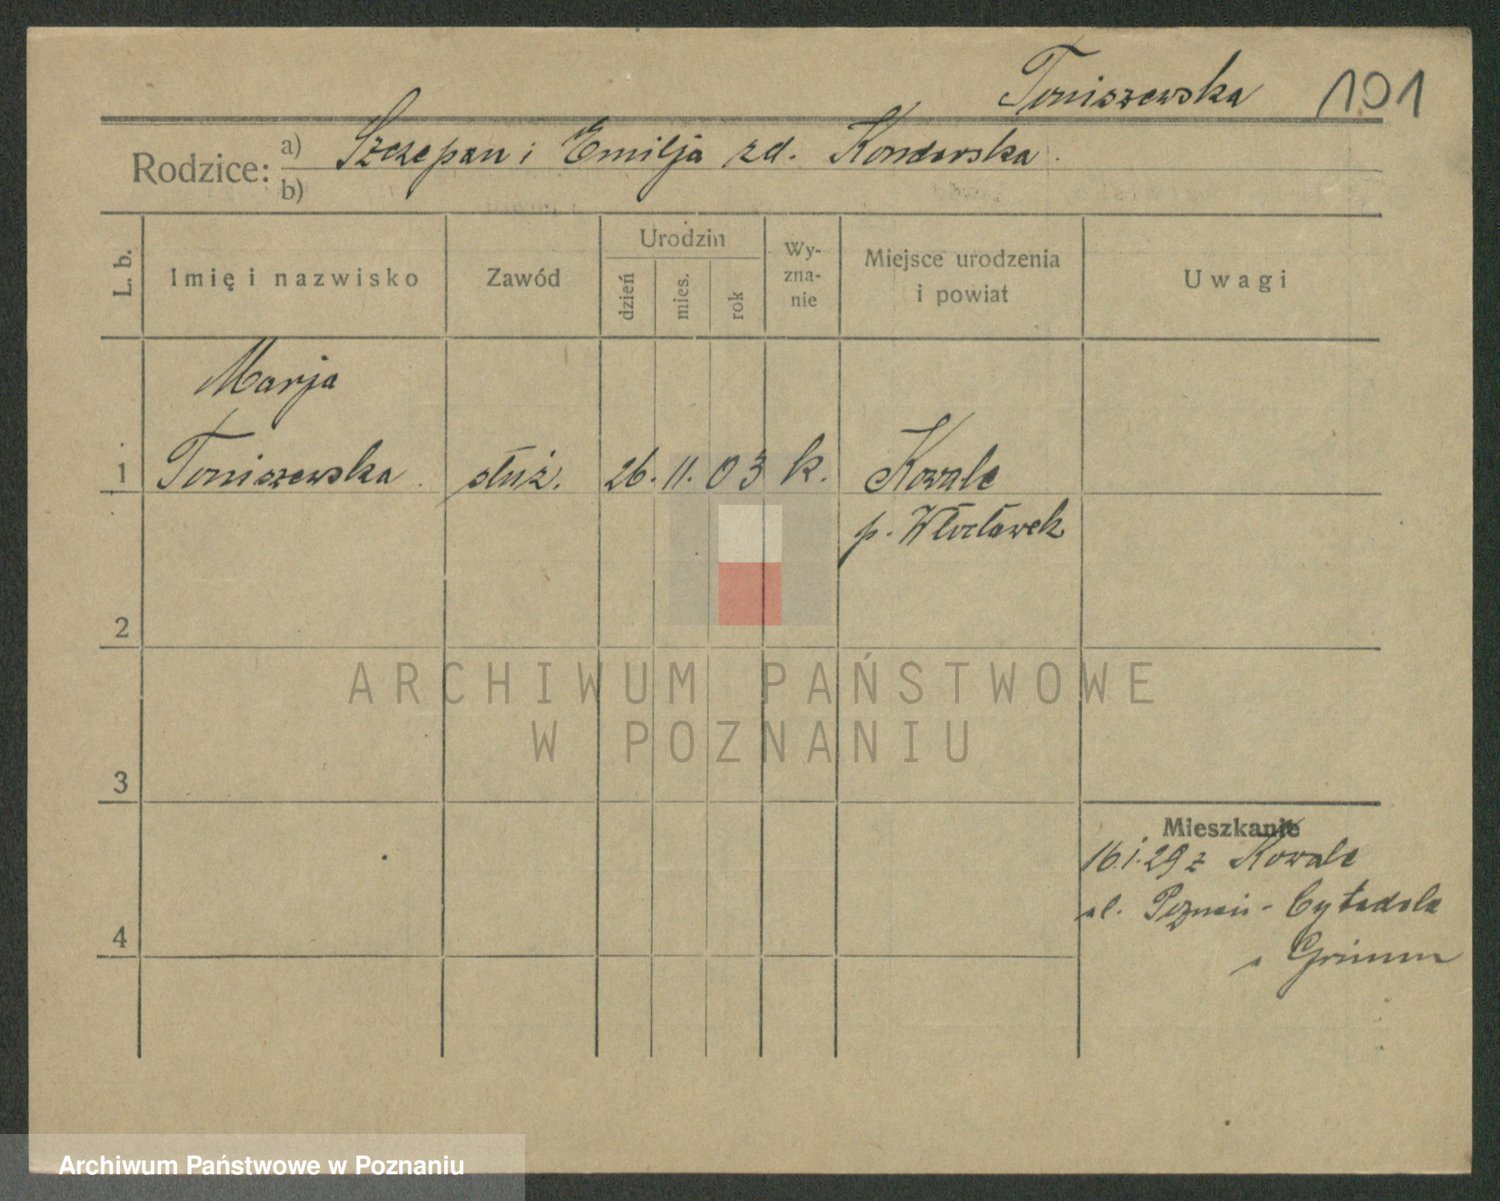 Toniszewska 101
Rodzice: a) Szczepan i Emilja zd. Kondorska.
b)
L. b. Imię i nazwisko Zawód Urodzin dzień mies. rok Wy-zna-nie Miejsce urodzenia i powiat Uwagi
Marja
1 Toniszewska. służ. 26. 11. 03 k. Kowale
p. Włocławek
2
ARCHIWUM PAŃSTWOWE
W POZNANIU
3
Mieszkanie
16.1.29 z Kowale
Poznań - Cytadela
Grimm
4
Archiwum Państwowe w Poznaniu